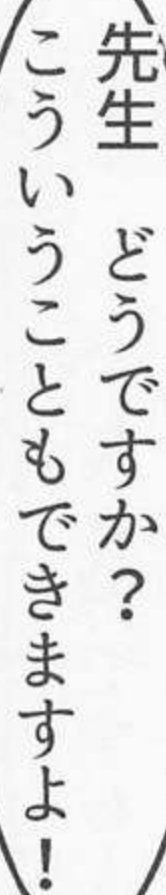 先生　どうですか？
こういうこともできますよ！